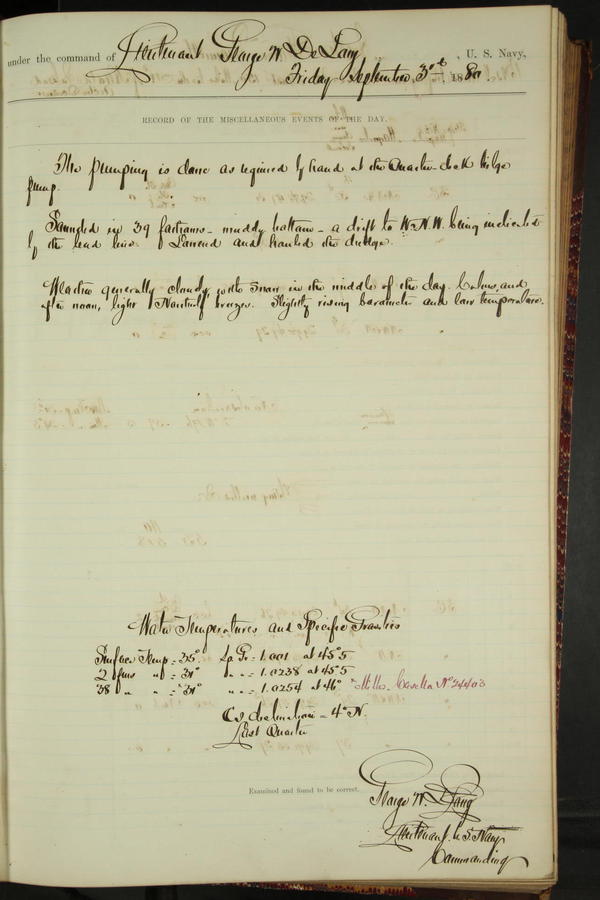 under the command of Lieutenant George W De Long, U. S. Navy,
Friday September 3rd, 1880
RECORD OF THE MISCELLANEOUS EVENTS OF THE DAY.
The pumping is done as required by hand at the Quarter deck bilge
pump.
Sounded in 39 fathoms - muddy bottom - a drift to W.N.W. being indicated
by the lead line. Lowered and hauled the dredge.
Weather generally cloudy, with snow in the middle of the day. Calms, and
after noon, light Northerly breezes. Slightly rising barometer and low temperature.
Water Temperatures and Specific Gravities
Surface Temp = 35° Sp Gr = 1.001 at 45°5
2 fms " = 31° " " = 1.0238 at 45°5
38 " " = 31° " " = 1.0254 at 46° Miller Casella No 24403
C's declination = 4° N.
Last Quarter
Examined and found to be correct.
George W. De Long
Lieutenant U.S. Navy
Commanding